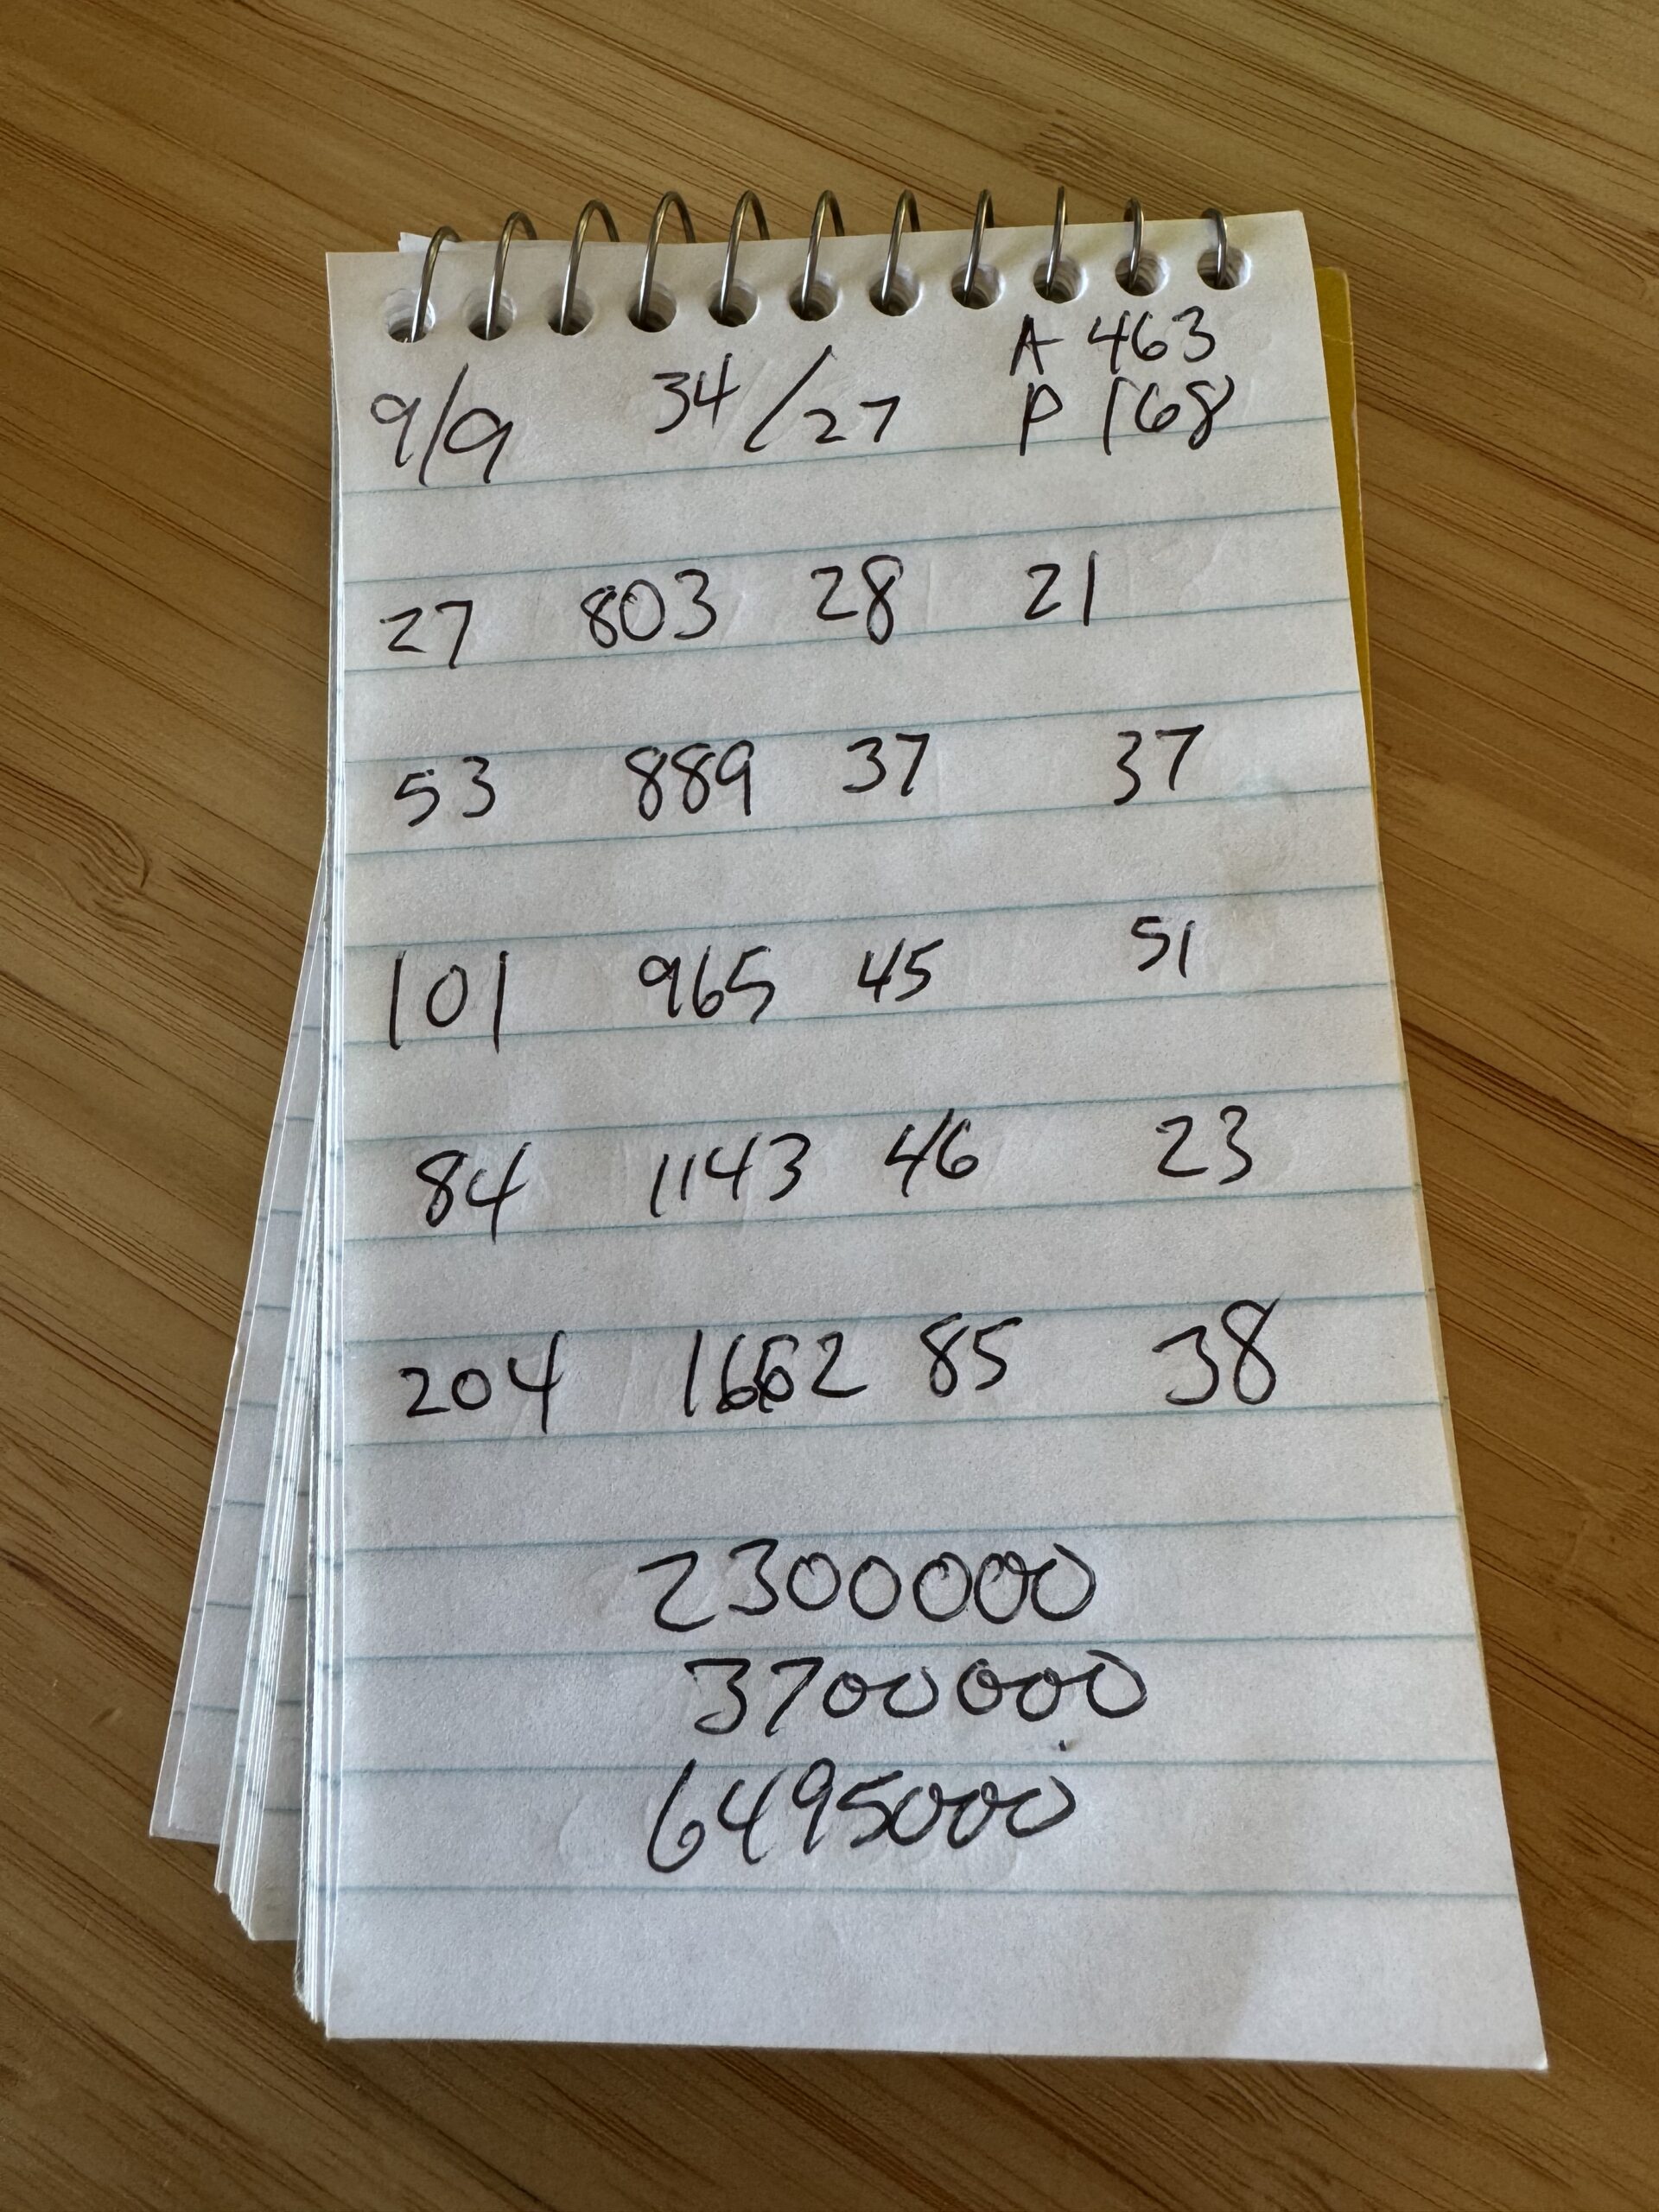 A 463
9/9 34/27 P 168
27 803 28 21
53 889 37 37
101 965 45 51
84 1143 46 23
204 1662 85 38
2300000
3700000
6495000